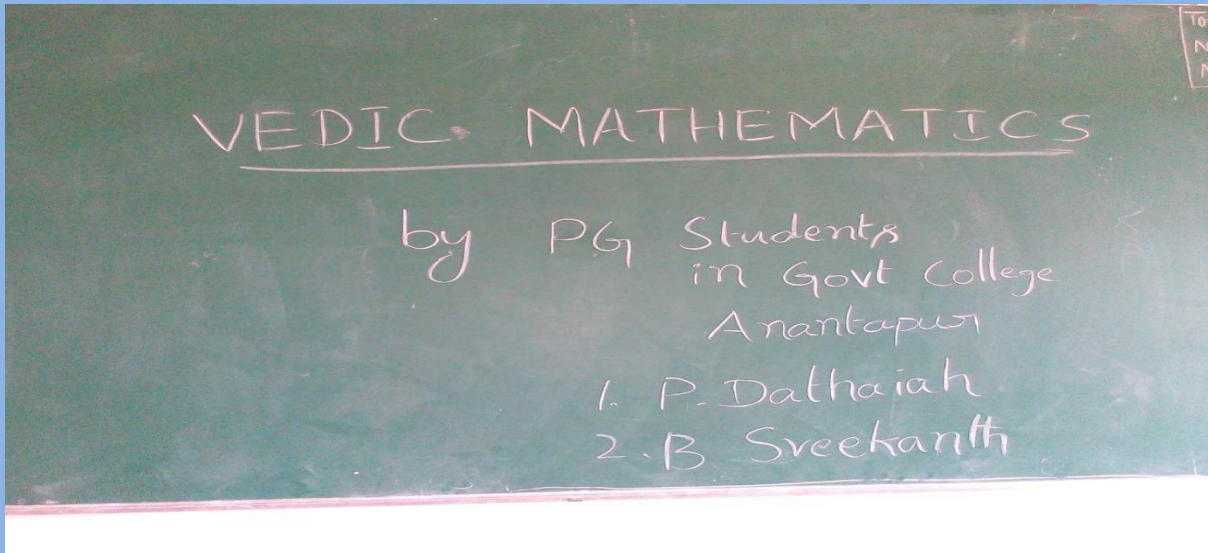 VEDIC MATHEMATICS
by PG Students
in Govt College
Anantapur
1. P. Dathaiah
2. B Sreekanth